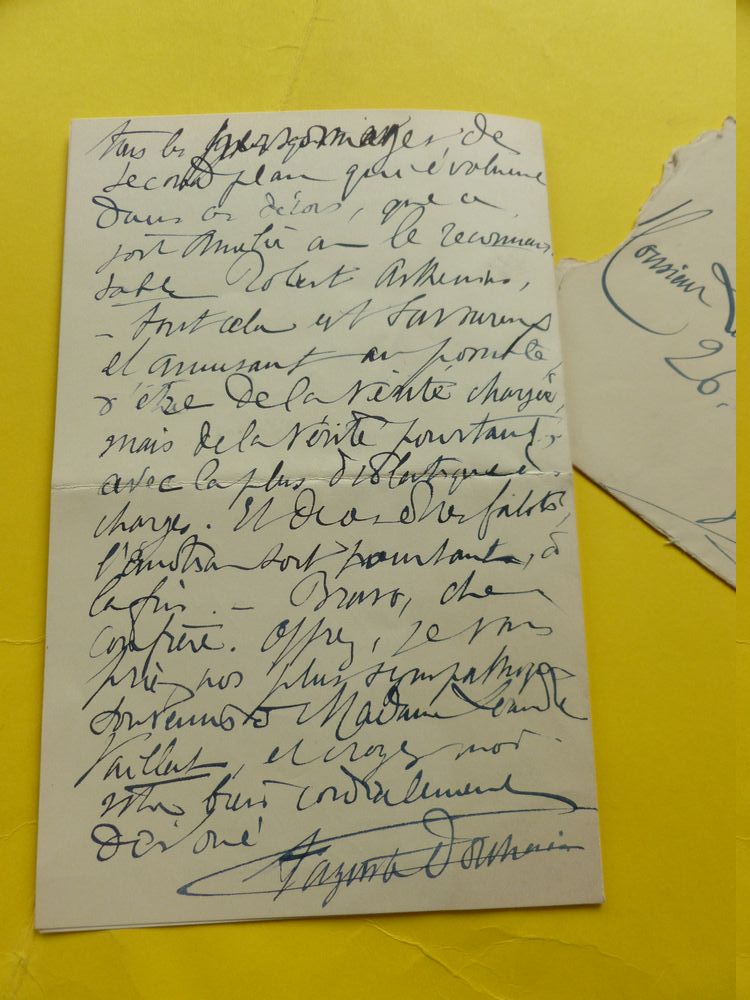 tous les personnages de
second plan qui évoluent
dans ces décors, que ce
soit Amélie ou le reconnais
sable Robert
– tout cela est savoureux
et amusant au possible
d'être de la vérité chargée,
mais de la vérité pourtant,
avec la plus élastique des
charges. Et de ces êtres falots,
l'émotion sort pourtant, à
la fin. – Bravo, cher
confrère. Offrez, je vous
prie, nos plus sympathiques
souvenirs à Madame Léandre
Vaillat, et croyez moi
votre bien cordialement
dévoué
Monsieur
26